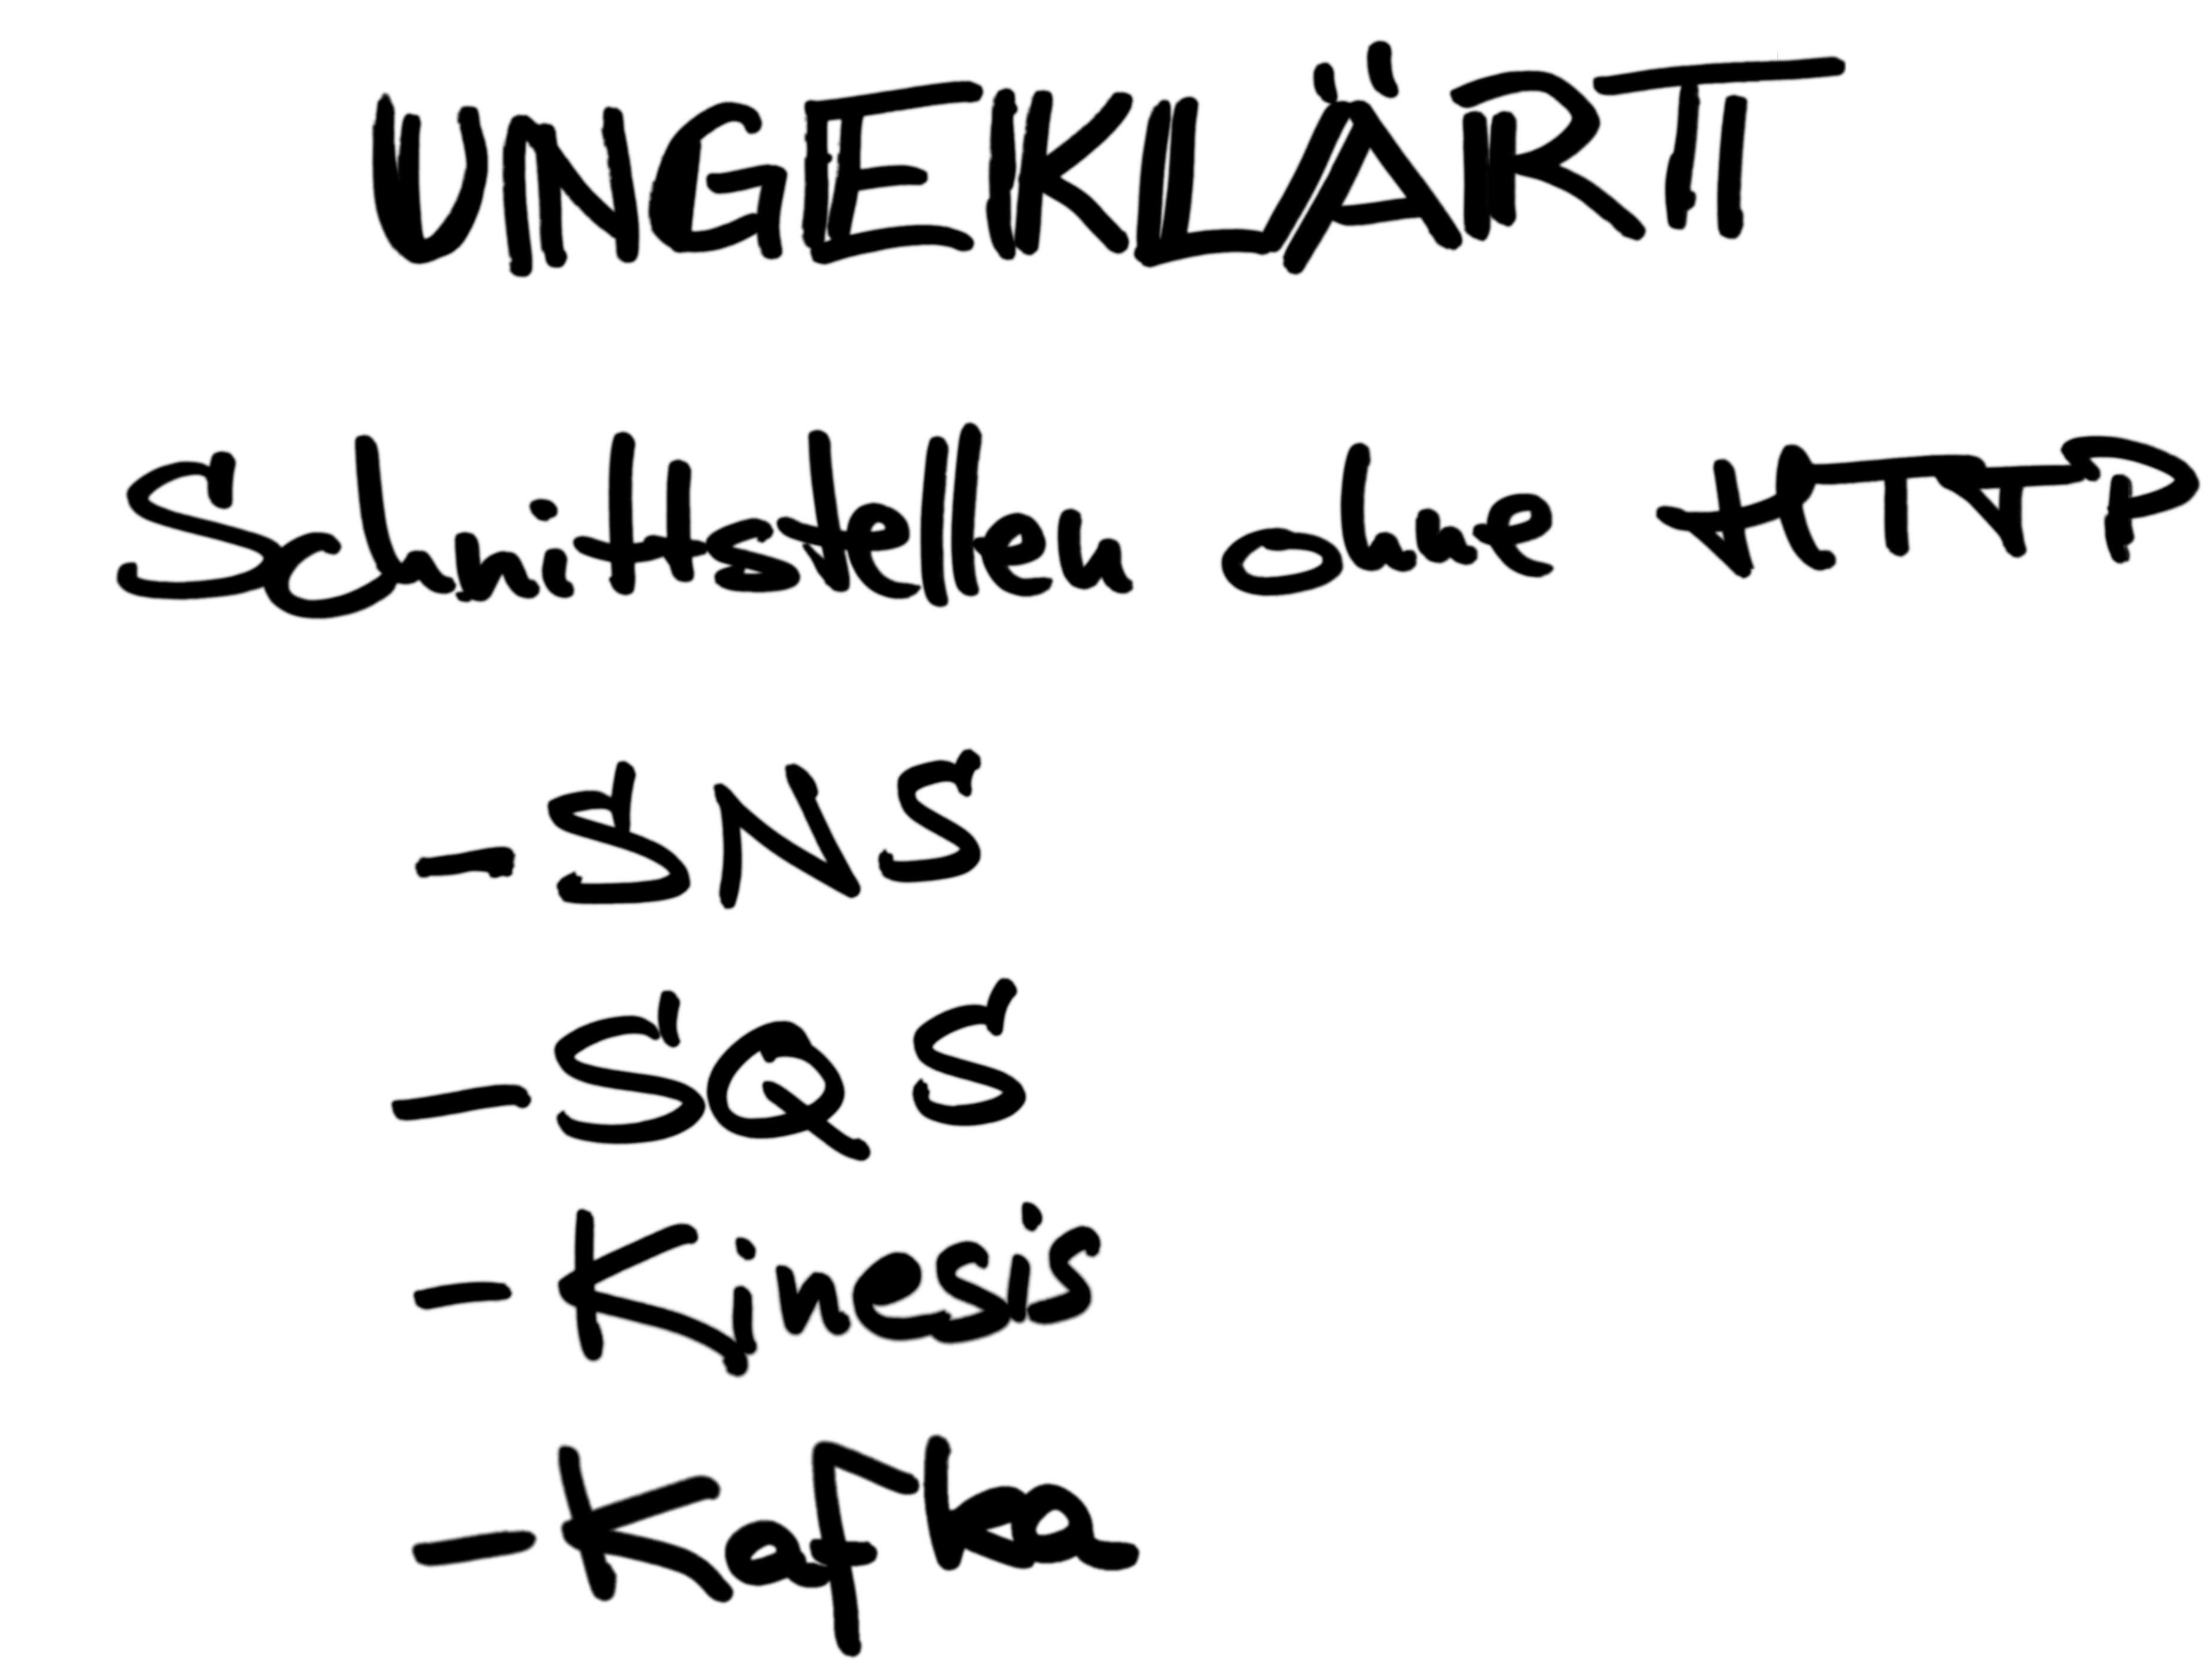 UNGEKLÄRT
Schnittstellen ohne HTTP
- SNS
- SQS
- Kinesis
- Kafka